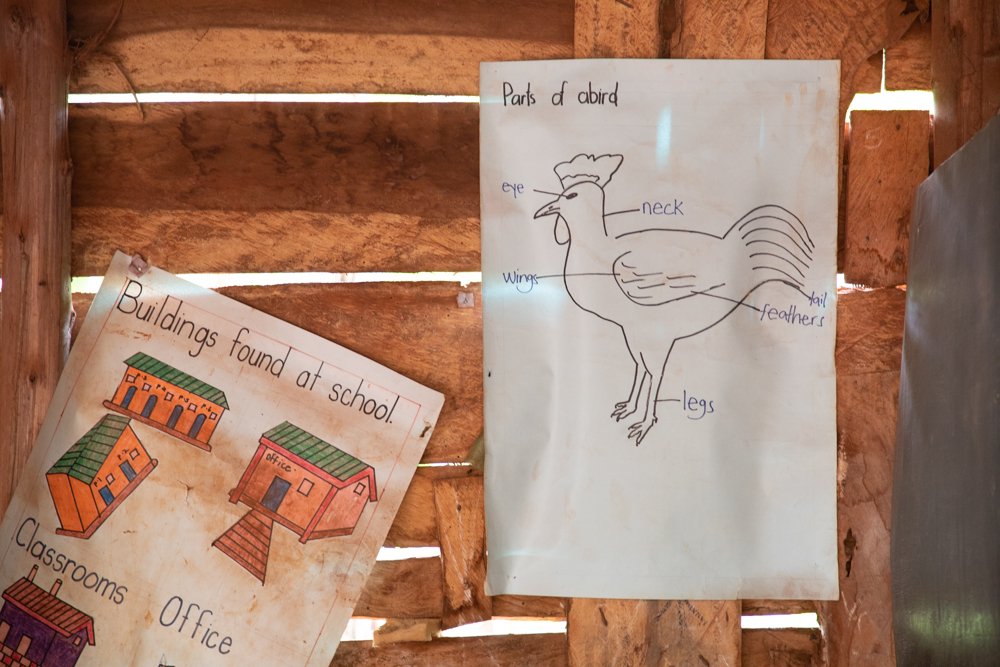 Parts of abird
eye
neck
wings
tail
feathers
legs
Buildings found at school.
office
Classrooms
Office